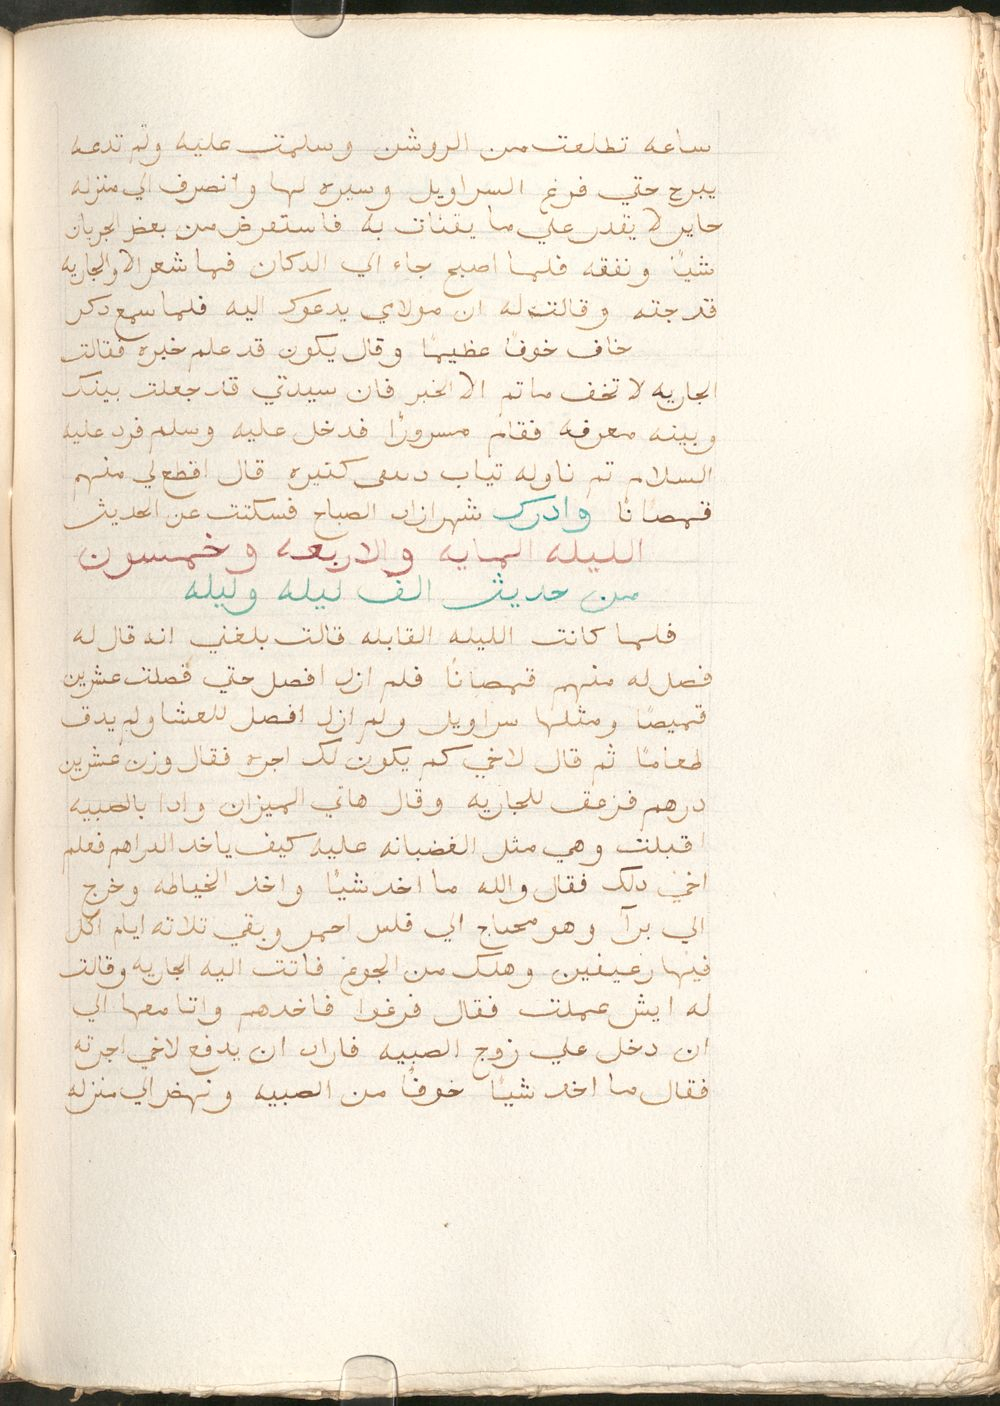 ساعه تطلعت من الروشن وسلمت عليه ولم تدعه
يبرح حتي فرغ السراويل وسيره لها وانصرف الي منزله
حاير لا يقدر علي ما يقتات به فاستقرض من بعض الجريان
شياً ونفقه فلما اصبح جاء الي الدكان فما شعر الا والجاريه
قد جته وقالت له ان مولاي يدعوك اليه فلما سمع دكر
خاف خوفاً عظيماً وقال يكون قد علم خبره فقالت
الجاريه لا تخف ما تم الا الخير فان سيدتي قد جعلت بينك
وبينه معرفه فقام مسروراً فدخل عليه وسلم فرد عليه
السلام تم ناوله تياب كتيره قال اقطع لي منهم
قمصاناً وادرك شهرازاد الصباح فسكتت عن الحديث
الليله المايه والاربعه وخمسون
من حديث الف ليله وليله
فلما كانت الليله القابله قالت بلغني انه قال له
فصل له منهم قمصاناً فلم ازل افصل حتي فصلت عشرين
قميصاً ومثلها سراويل ولم ازل افصل للعشا ولم يدق
طعاماً ثم قال لاخي كم يكون لك اجره فقال وزن عشرين
درهم فزعق للجاريه وقال هاتي الميزان وادا بالصبيه
اقبلت وهي مثل الغضبانه عليه كيف ياخد الدراهم فعلم
اخي دلك فقال والله ما اخد شياً واخد الخياطه وخرج
الي برآ وهو محتاج الي فلس احمر وبقي تلاته ايام اكل
فيها رغيفين وهلك من الجوع فاتت اليه الجاريه وقالت
له ايش عملت فقال فرغوا فاخدهم واتا معها الي
ان دخل علي زوج الصبيه فاراد ان يدفع لاخي اجرته
فقال ما اخد شياً خوفاً من الصبيه ونهض الي منزله